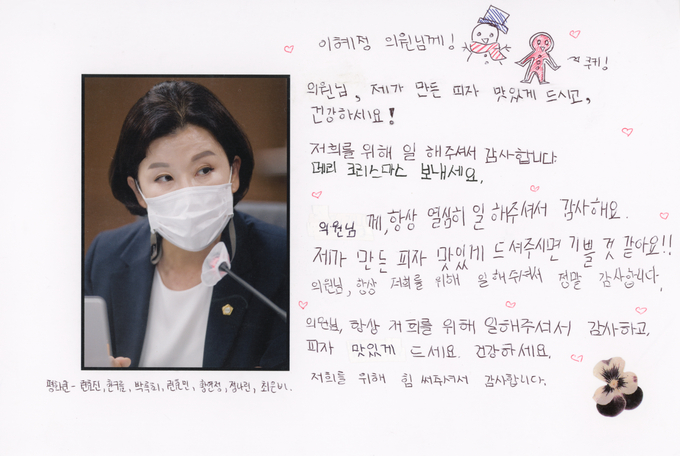 이혜정 의원님께!
쿠키!
의원님, 제가 만든 피자 맛있게 드시고,
건강하세요!
저희를 위해 일 해주셔서 감사합니다
메리 크리스마스 보내세요.
의원님께, 항상 열심히 일 해주셔서 감사해요.
제가 만든 피자 맛있게 드셔주시면 기쁠 것 같아요!!
의원님, 항상 저희를 위해 일해주셔서 정말 감사합니다.
의원님, 항상 저희를 위해 일해주셔서 감사하고,
피자 맛있게 드세요. 건강하세요.
저희를 위해 힘 써주셔서 감사합니다.
최은비.